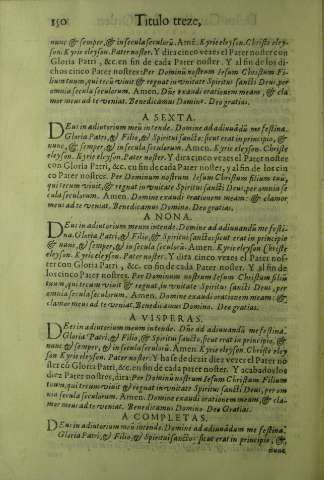 150 Titulo treze,
nunc & semper, & in secula seculorũ. Amẽ. Kyrie eleyson. Christe eley-
son. Kyrie eleyson. Pater noster. Y dira cinco vezes el Pater noster con
Gloria Patri, &c. en fin de cada Pater noster. Y al fin de los di-
chos cinco Pater nostres: Per Dominũ nostrum Iesum Christum Fi-
lium tuum, qui tecũ vivit & regnat in vnitate Spiritus sancti Deus, per
omnia secula seculorum. Amen. Dñe exaudi orationem meam, & cla
mor meus ad te veniat. Benedicamus Domino. Deo gratias.
A SEXTA.
DEus in adiutorium meũ intende. Domine ad adiuvãdũ me festina.
Gloria Patri, & Filio, & Spiritui sancto: sicut erat in principio, &
nunc, & semper, & in secula seculorum. Amen. Kyrie eleyson. Christe
eleyson. Kyrie eleyson. Pater noster. Y dira cinco vezes el Pater noster
con Gloria Patri, &c. en fin de cada Pater noster, y al fin de los cin
co Pater nostres. Per Dominum nostrum Iesum Christum filium tuũ,
qui tecum vivit, & regnat in vnitate Spiritus sancti Deus, per omnia se
cula seculorum. Amen. Domine exaudi orationem meam: & clamor
meus ad te veniat. Benedicamus Domino. Deo gratias.
A NONA.
DEus in adiutorium meum intende. Domine ad adiuvandũ me festi-
na. Gloria Patri, & Filio, & Spiritui sancto: sicut erat in principio
& nunc, & semper, & in secula seculorum. Amen. Kyrie eleyson Christe
eleyson. Kyrie eleyson. Pater noster. Y dira cinco vezes el Pater nos-
ter con Gloria Patri, &c. en fin de cada Pater noster. Y al fin de
los cinco Pater nostres. Per Dominum nostrum Iesum Christum filiũ
tuum, qui tecum vivit & regnat, in vnitate Spiritus sancti Deus, per
omnia secula seculorum. Amen. Domine exaudi orationem meam: &
clamor meus ad te veniat. Benedicamus Domino. Deo gratias.
A VISPERAS.
DEus in adiutorium meum intende. Dñe ad adiuvandũ me festina.
Gloria Patri, & Filio, & Spiritui sancto, sicut erat in principio, &
nunc & semper, & in secula seculorum. Amen. Kyrie eleyson. Christe eley
son Kyrie eleyson. Pater noster. Y ha se de dezir diez vezes el Pater no
ster cõ Gloria Patri, &c. en fin de cada Pater noster. Y acabados los
diez Pater nostres, dira: Per Dominũ nostrum Iesum Christum, Filium
tuum, qui tecum vivit & regnat in vnitate Spiritus sancti Deus, per om
nia secula seculorum. Amen. Domine exaudi orationem meam, & cla-
mor meus ad te veniat. Benedicamus Domino. Deo Gratias.
A COMPLETAS.
DEus in adiutorium meũ intende. Domine ad adiuvãdum me festina.
Gloria Patri, & Filio, & Spiritui sancto: sicut erat in principio, &
nunc